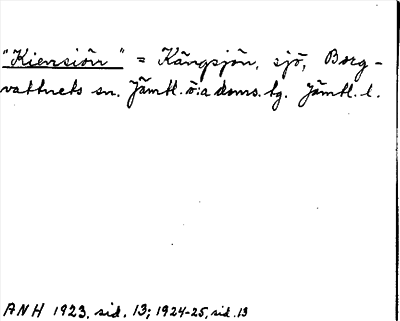 "Kiensiön" = Kängsjön, sjö, Borg-
vattnets sn. Jämtl. ö:a doms. tg. Jämtl. l.
ANH 1923, sid. 13; 1924-25, sid. 13